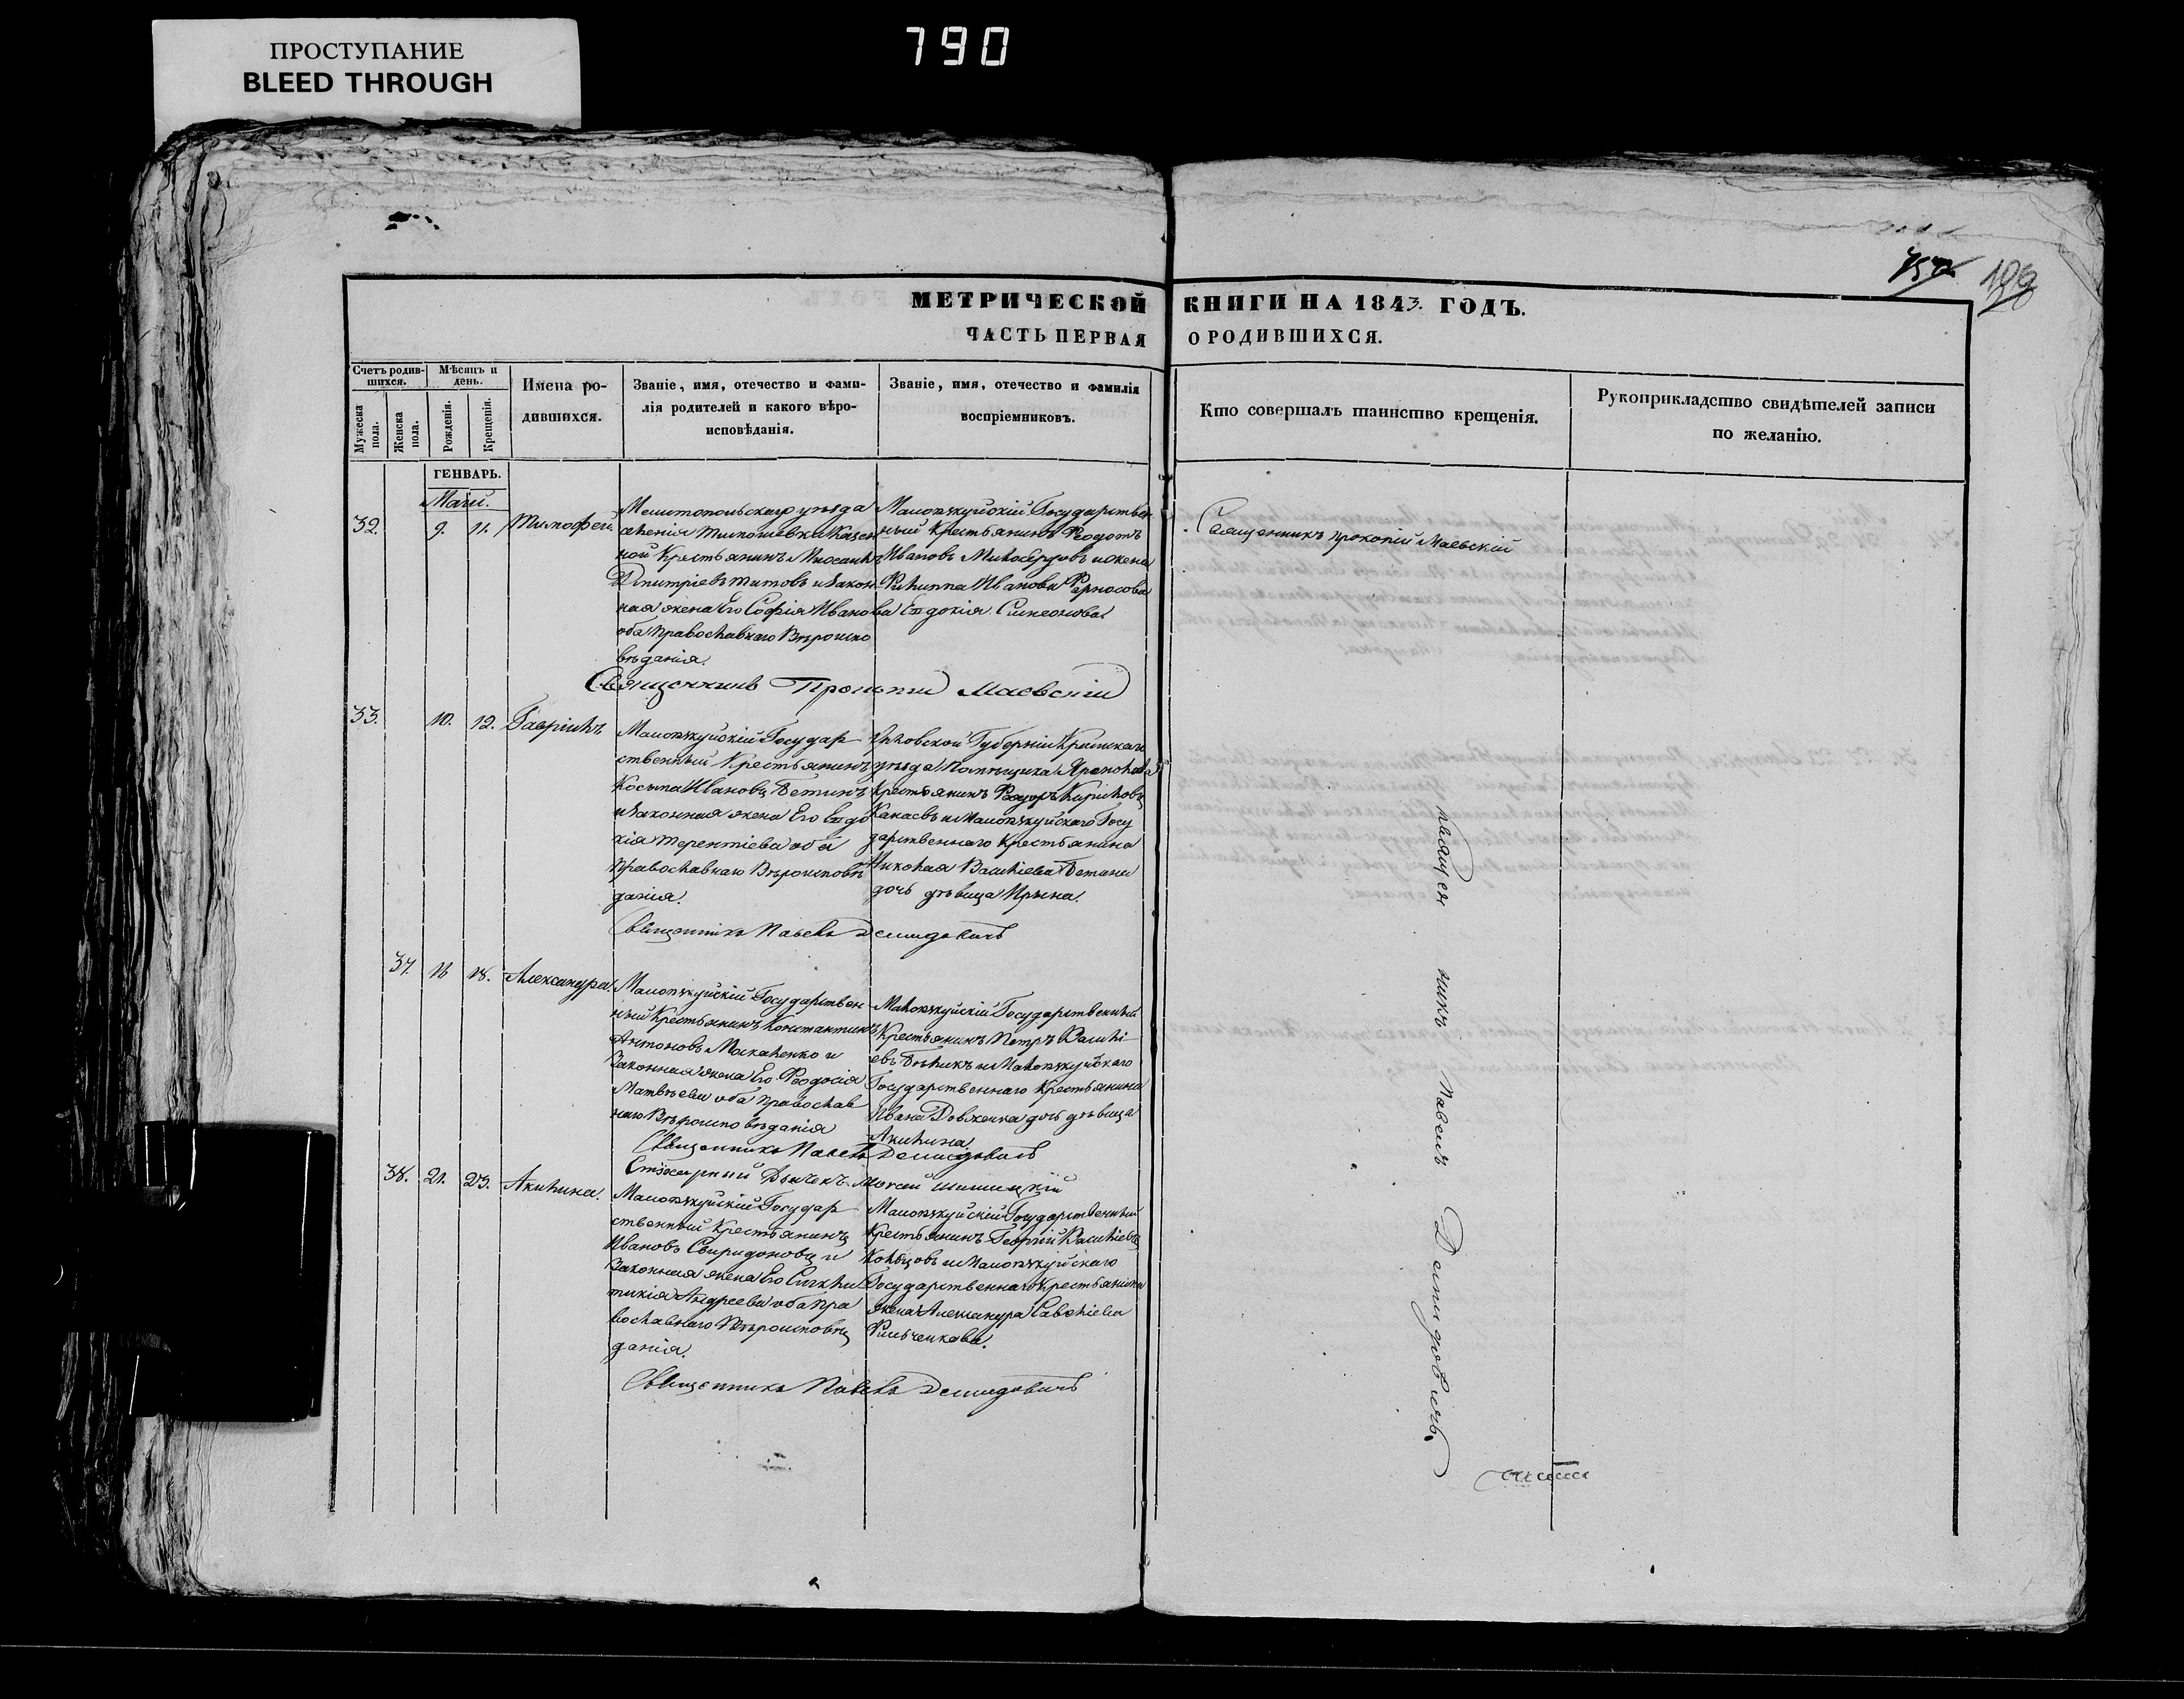 ПРОСТУПАНИЕ
BLEED THROUGH
790
МЕТРИЧЕСКОЙ КНИГИ НА 1843. ГОДЪ.
ЧАСТЬ ПЕРВАЯ О РОДИВШИХСЯ.
Счетъ родив-
шихся.
Мѣсяцъ и
день.
Мужеска
пола.
Женска
пола.
Рожденія.
Крещенія.
Имена ро-
дившихся.
Званіе, имя, отечество и фами-
лія родителей и какого вѣро-
исповѣданія.
Званіе, имя, отечество и фамилія
воспріемниковъ.
Кто совершалъ таинство крещенія.
Рукоприкладство свидѣтелей записи
по желанію.
ГЕНВАРЬ.
Маій.
32. 9. 11. Тимофей.
Мелитопольскаго уѣзда
селенія Тимошевки Казен
ной Крестьянинъ
Дмитріевъ Титовъ и закон
ная жена Его Софія Иванова
оба православнаго Вѣроиспо
вѣданія.
Государствен
ный Крестьянинъ Федотъ
Ивановъ Милосердовъ и жена
Филиппа Иванова
Евдокія Симеонова
Священникъ Прокопій Маевскій
Священникъ Прокопій Маевскій
33. 10. 12. Гавріилъ
Государ
ственный Крестьянинъ
Косьма Ивановъ Бетинъ
и законная жена Его Евдо
кія Терентіева оба
православнаго Вѣроисповѣ
данія.
Губерніи
уѣзда помѣщика
Крестьянинъ Федоръ Кириловъ
Канаевъ и Госу
дарственнаго Крестьянина
Николая Василіева Бетина
дочь дѣвица Ирына.
Священникъ Павелъ Демидовичъ
37. 16 18. Александра.
Государствен
ный Крестьянинъ Константинъ
Антоновъ Макаленко и
Законная жена Его Феодосія
Матвѣева оба православ
наго Вѣроисповѣданія
Государственный
Крестьянинъ Петръ Василі
евъ
Государственнаго Крестьянина
Ивана Довженка дочь дѣвица
Акилина.
Священникъ Павелъ Демидовичъ
38. 21. 23. Акилина.
Государ
ственный Крестьянинъ
Ивановъ Свиридоновъ и
Законная жена Его Синкли
тикія Андреева оба пра
вославнаго Вѣроисповѣ
данія.
Государственный
Крестьянинъ Георгій Василіевъ
Кольцовъ и
Государственнаго Крестьянина
жена Александра Савеліева
Фильченкова.
Священникъ Павелъ Демидовичъ
Священникъ Павелъ Демидовичь.